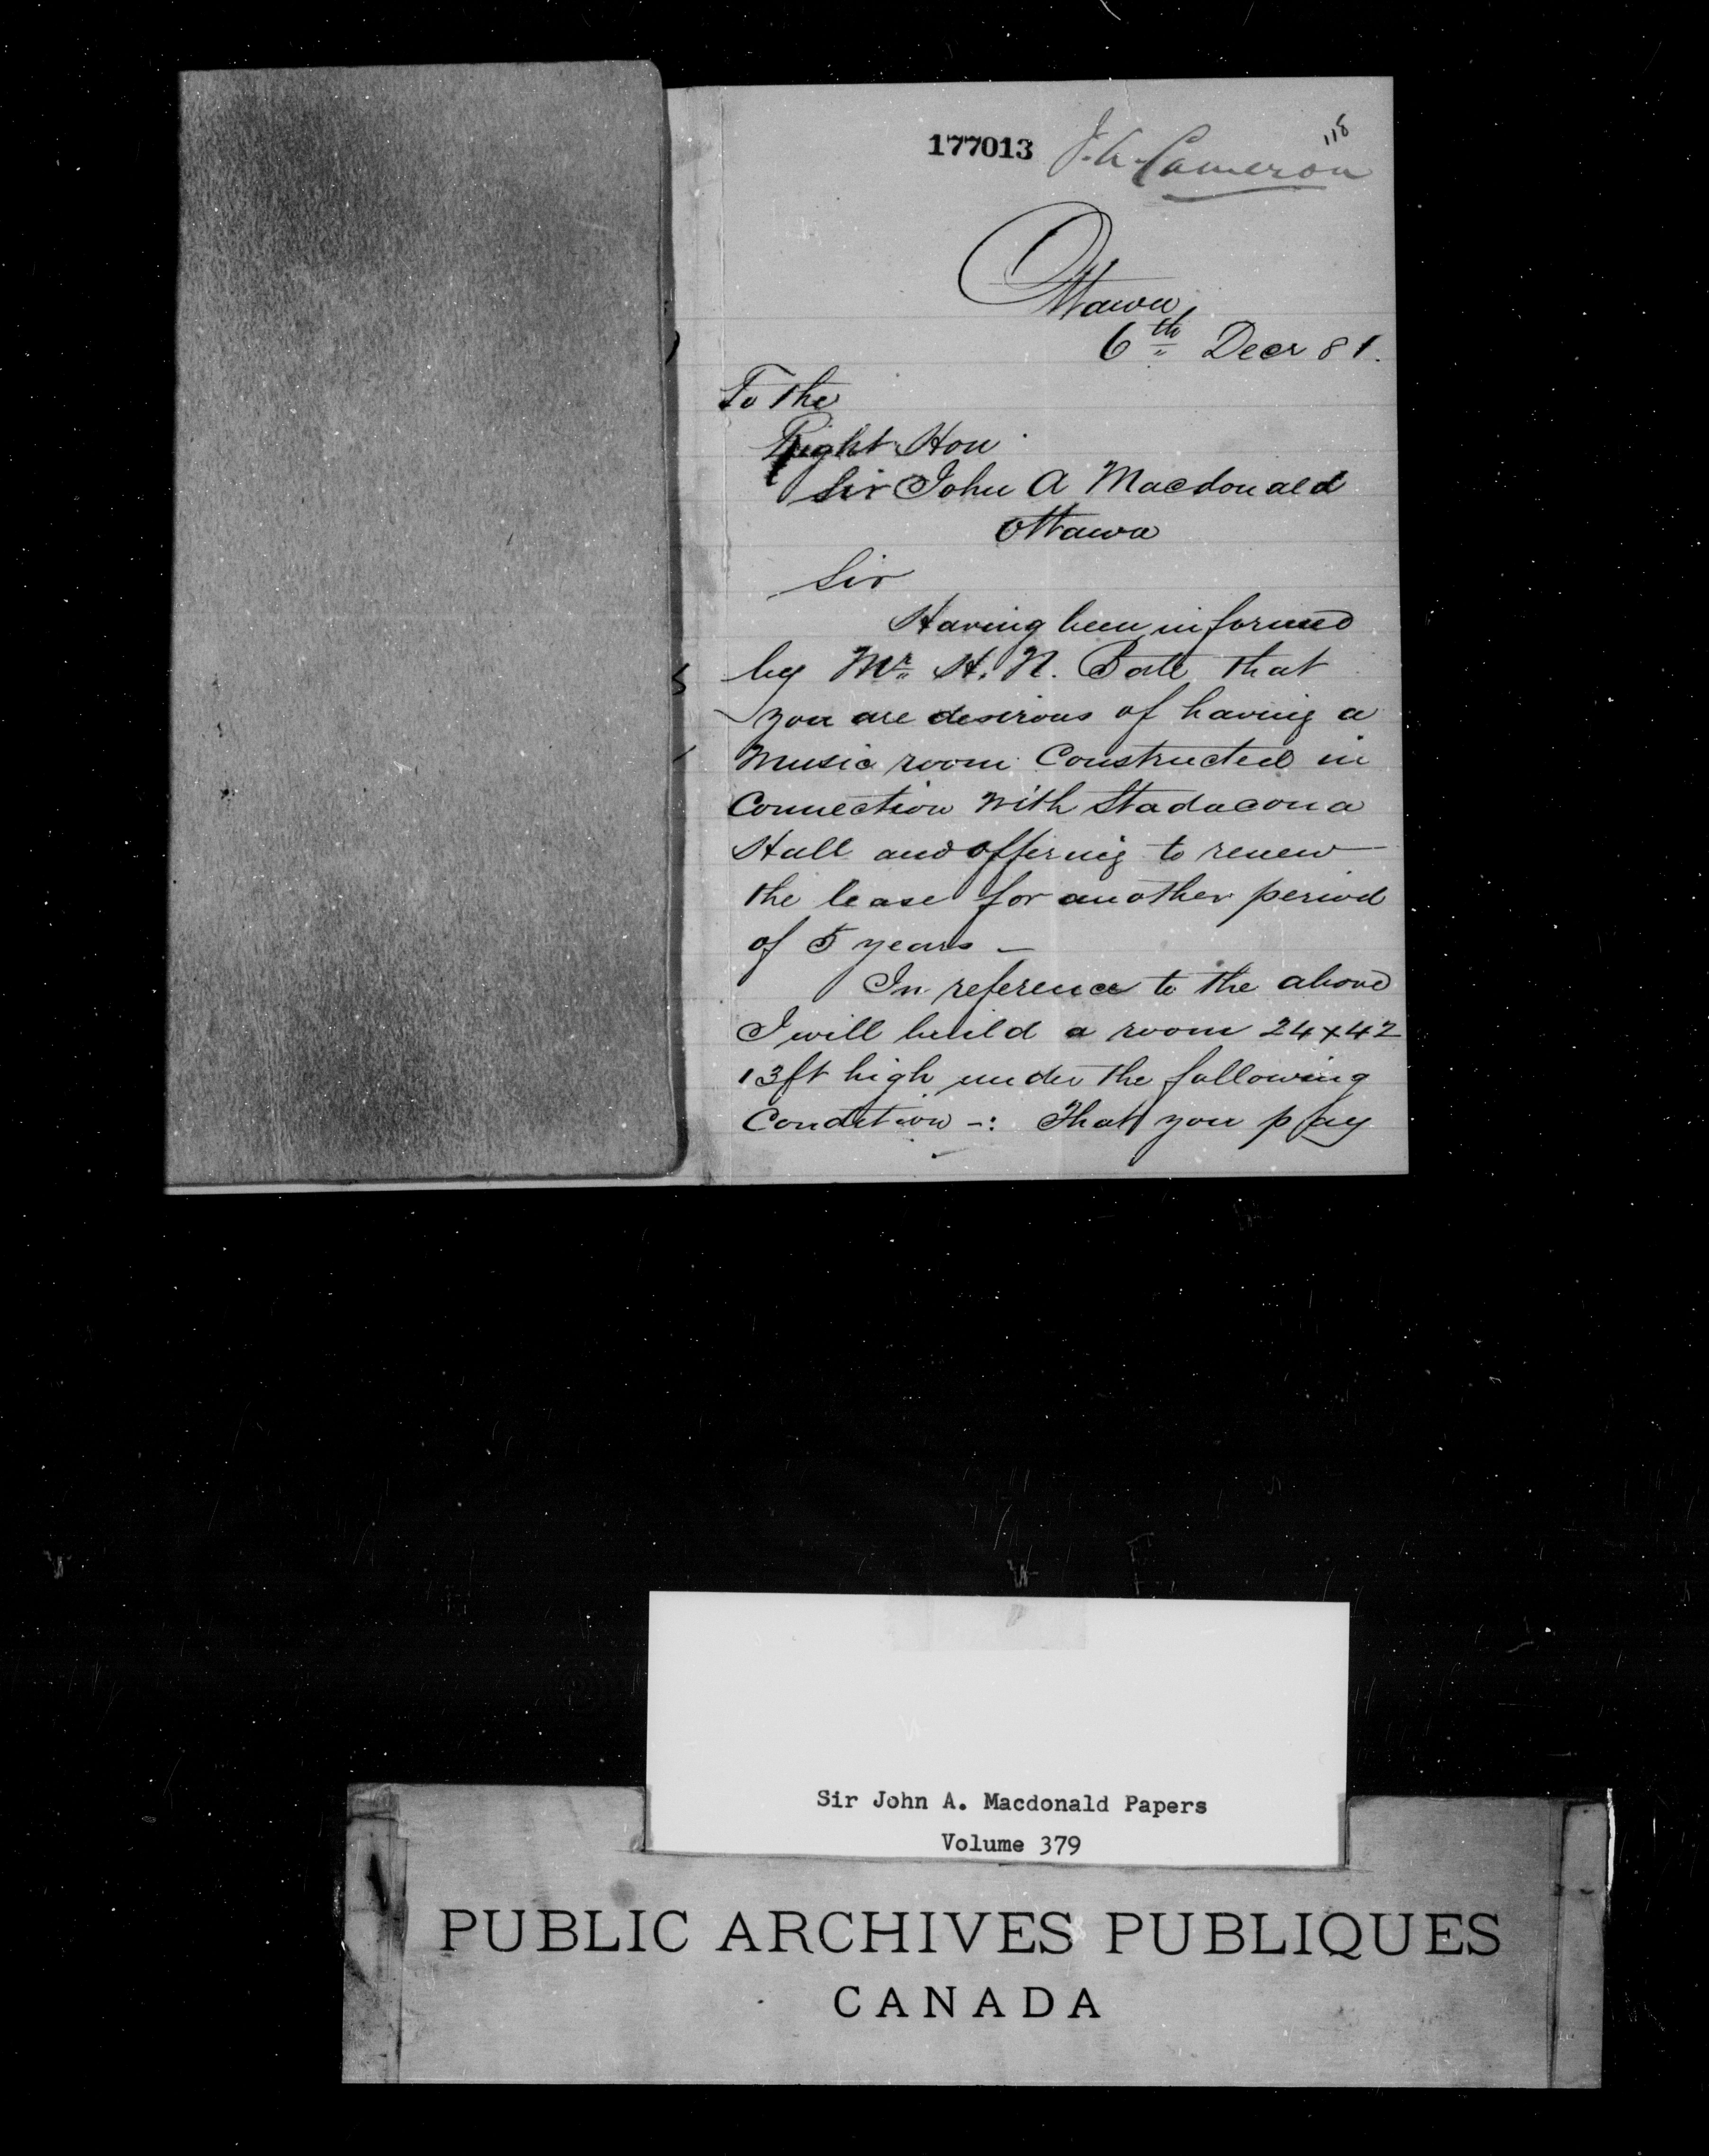 177013 J. A. Cameron
118
Ottawa
6th Decr 81.
To the
Right Hon
Sir John A Macdonald
Ottawa
Sir
Having been informed
by Mr H. N. Bate that
you are desirous of having a
Music room Constructed in
Connection With Stadacona
Hall and offering to renew
the lease for another period
of 5 years –
In reference to the above
I will build a room 24x42
13ft high under the following
Condition -: That you pay
Sir John A. Macdonald Papers
Volume 379
PUBLIC ARCHIVES PUBLIQUES
CANADA